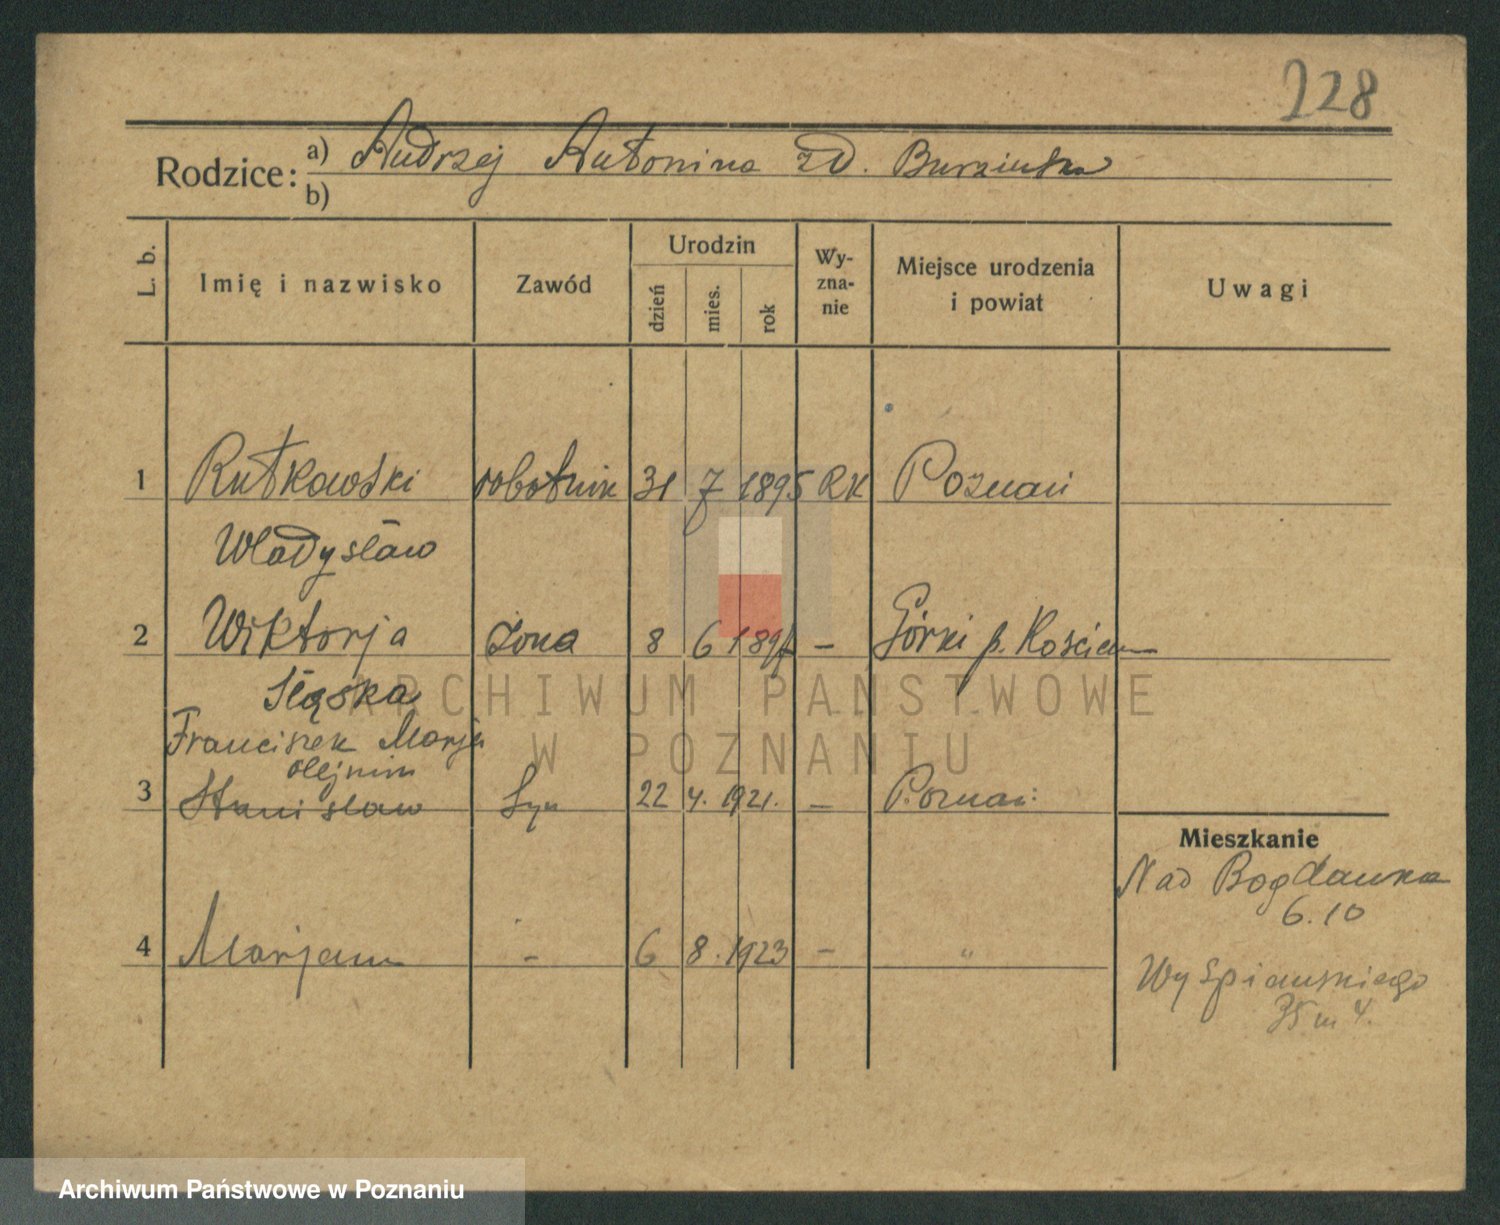 228
Rodzice: a) Andrzej Antonina zd. Burzińska
b)
L. b. Imię i nazwisko Zawód Urodzin dzień mies. rok Wy-zna-nie Miejsce urodzenia i powiat Uwagi
1 Rutkowski robotnik 31 7 1895 RK Poznań
Władysław
2 Wiktorja żona 8 6 1897 — Górki p. Kościan
Śląska
Franciszek Marja
Olejnik
3 Stanisław Syn 22 4. 1921. — Poznań
Mieszkanie
Nad Bogdanka
6.10
4 Marjan — 6 8. 1923 — "
Wyspiańskiego
35 m 4.
ARCHIWUM PAŃSTWOWE
W POZNANIU
Archiwum Państwowe w Poznaniu